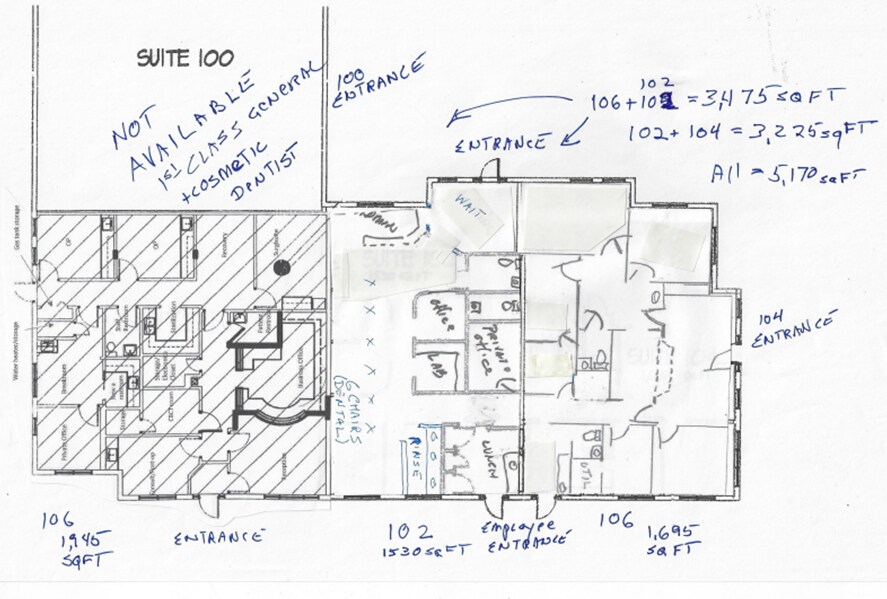 SUITE 100
NOT
AVAILABLE
1ST CLASS GENERAL
+COSMETIC
DENTIST
100
ENTRANCE
102
106+102 = 3,475 SQ FT
102+104 = 3,225 SQ FT
All = 5,170 SQ FT
ENTRANCE
WAIT
Gas tank storage
OP
OP
Recovery
Water heater/storage
Sterilization
Business Office
Breakroom
Storage
Private Office
Reception
OFFICE
LAB
PRIVATE
OFFICE
6 CHAIRS
(DENTAL)
RINSE
LUNCH
UTIL
104
ENTRANCE
106
1,945
SQFT
ENTRANCE
102
1530 SQ FT
Employee
ENTRANCE
106
1,695
SQ FT